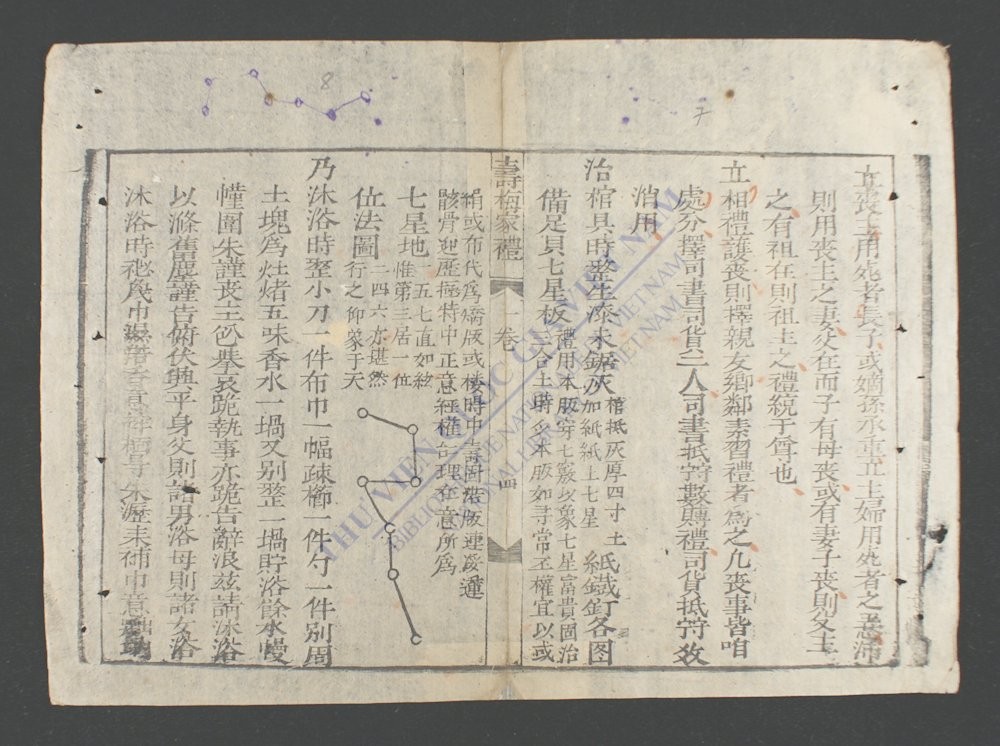 7
立喪主用死者長子或嫡孫承重立主婦用死者之妻沛
則用喪主之妻父在而子有母喪或有妻子喪則父主
之有祖在則祖主之禮統于尊也
立相禮護喪則擇親友鄉鄰素習禮者為之凡喪事皆咱
處分擇司書司貨二人司書抵符數賻禮司貨抵符效
消用
治棺具時整生漆末鋸灰 棺抵灰厚四寸 土 加紙紙上七星 紙鐵釘各图
備足貝七星板 禮用本版穿七竅以象七星富貴固治 三合土時多本版如尋常丕權宜以或
壽梅家禮 一卷 四
絹或布代為版或
骸骨迎 極特中正意經權 理在意所為
七星地 五七直如絃 惟第三居一位
位法圖 二四六方堪然 行之仰象于天
乃沐浴時整小刀一件布巾一幅疎櫛一件勺一件別周
土塊為灶烤五味香水一堝又別整一堝貯浴餘水幔
幃圍朱謹喪主 舉哀跪執事亦跪告辭浪茲請沐浴
以滌舊塵謹告俯伏興平身父則諸男浴母則諸女浴
沐浴時
8
THƯ VIỆN QUỐC GIA VIỆT NAM
BIBLIOTHEQUE NATIONALE DU VIETNAM
NATIONAL LIBRARY OF VIETNAM